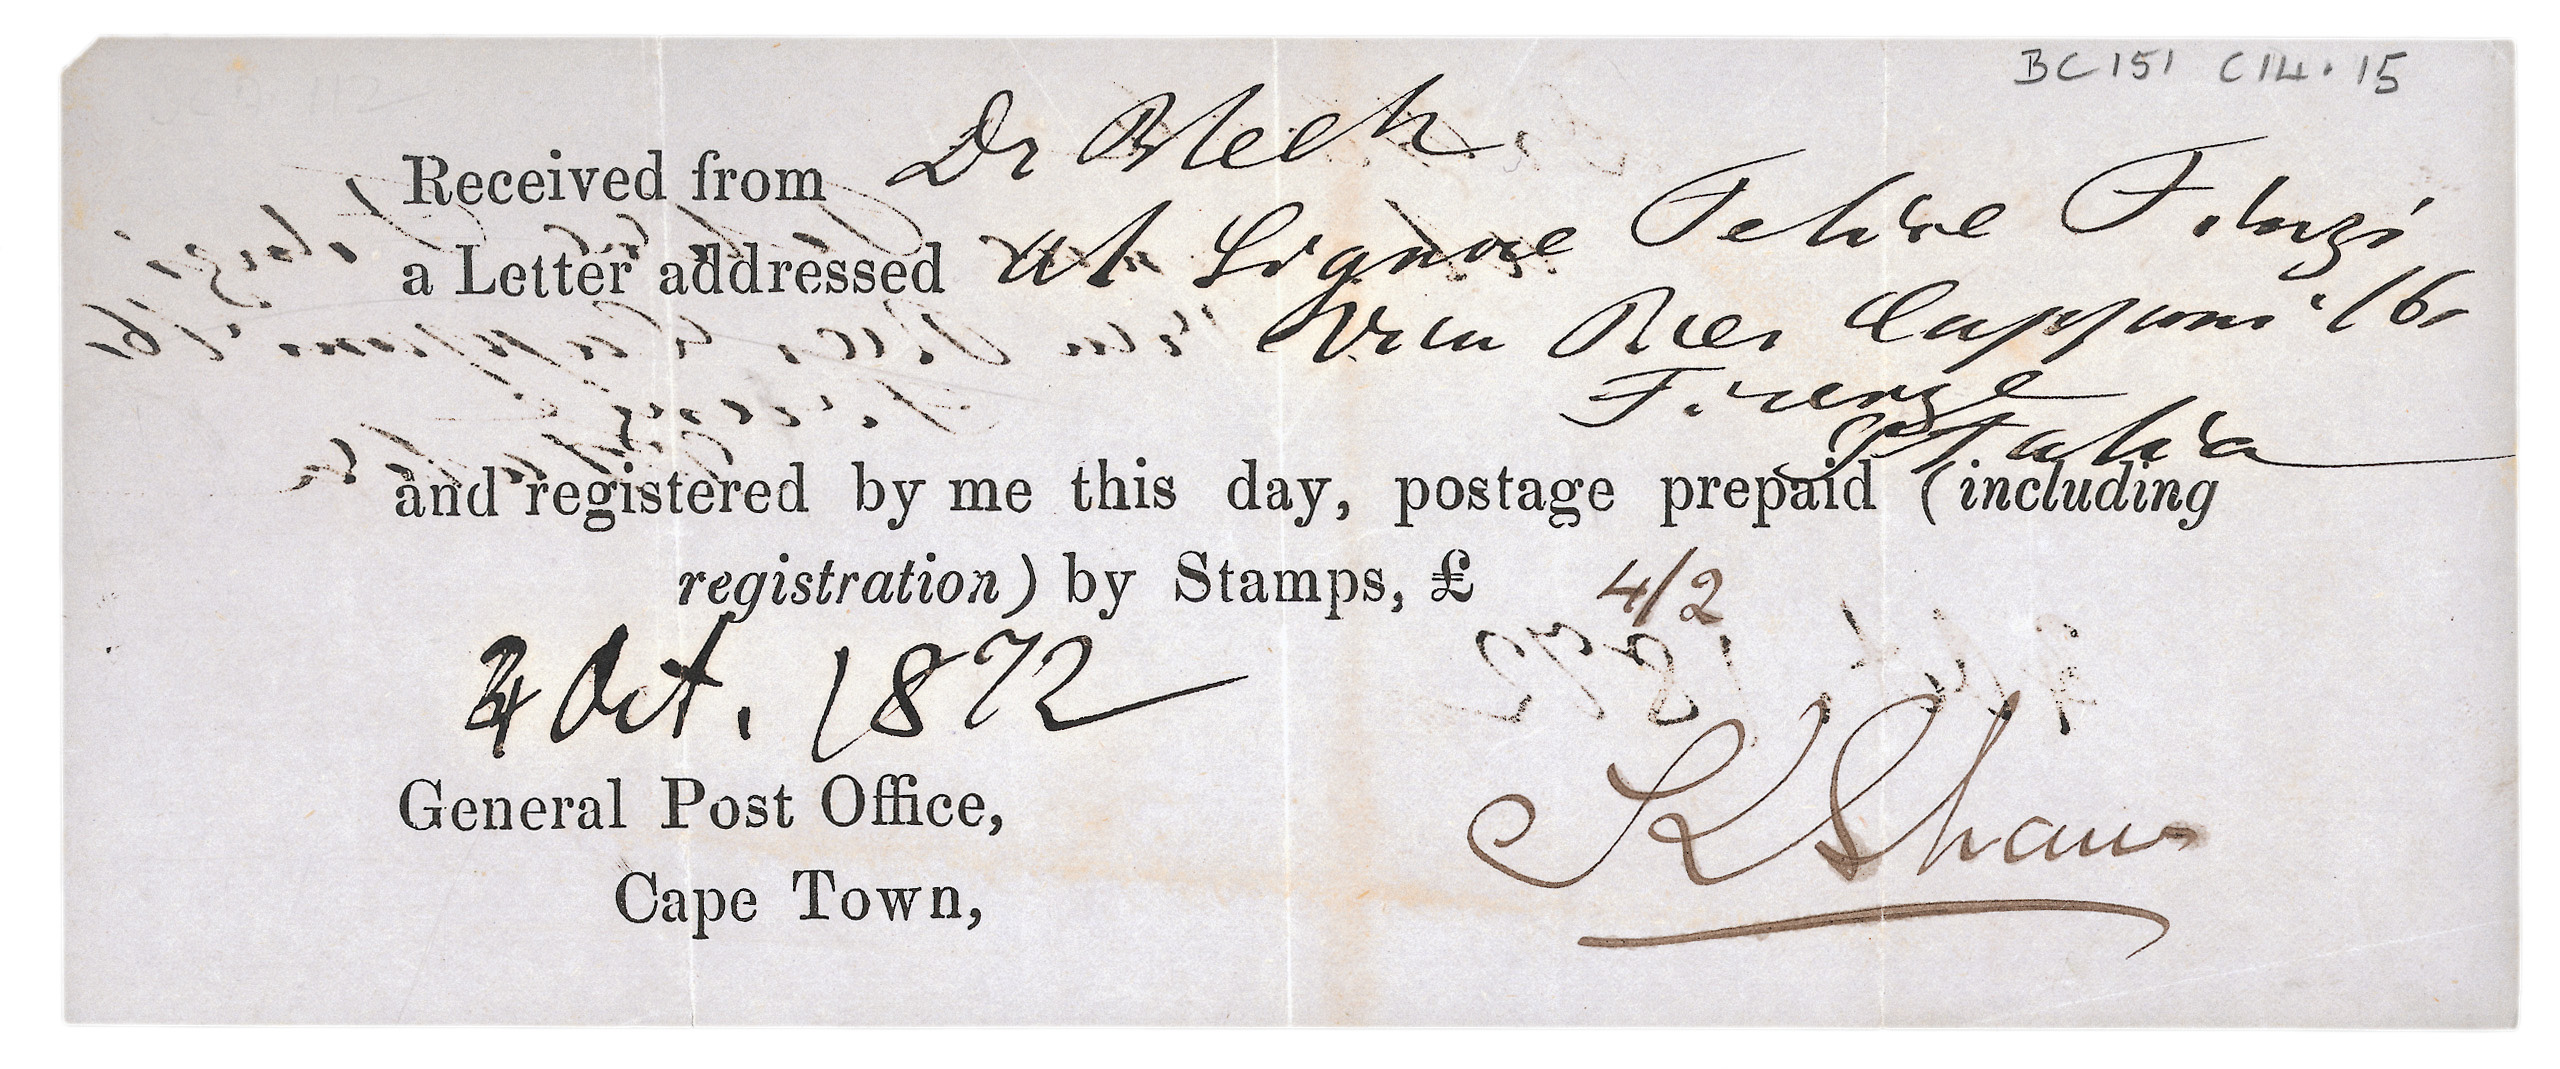 BC 151 C14.15
Received from Dr Bleek
a Letter addressed Al Signore Felice Finzi
Via Pier Capponi 16.
Firenze
Italia
and registered by me this day, postage prepaid (including
registration) by Stamps, £ 4/2
4 Oct. 1872
General Post Office,
Cape Town,
Shaw